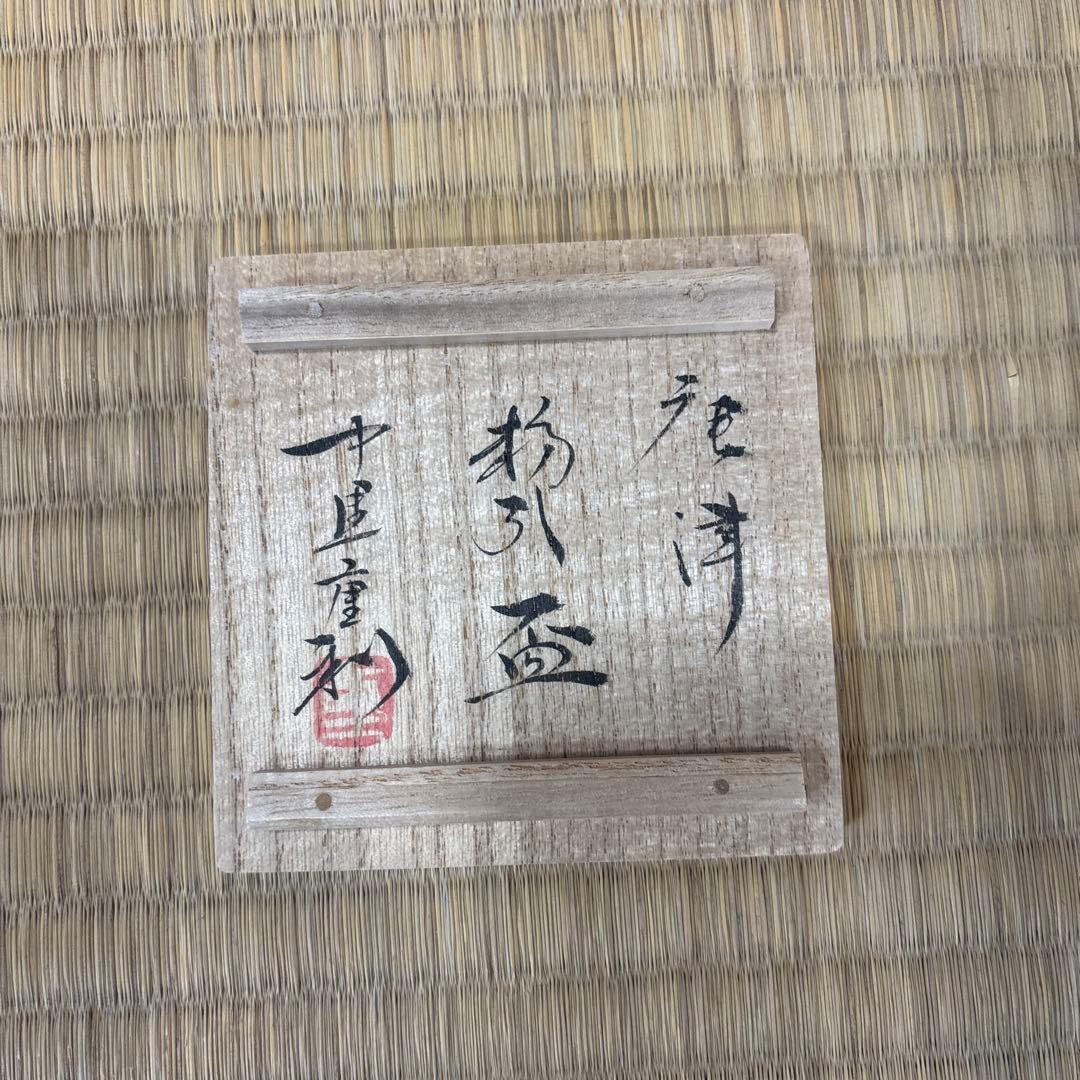 唐津
粉引盃
中里重利